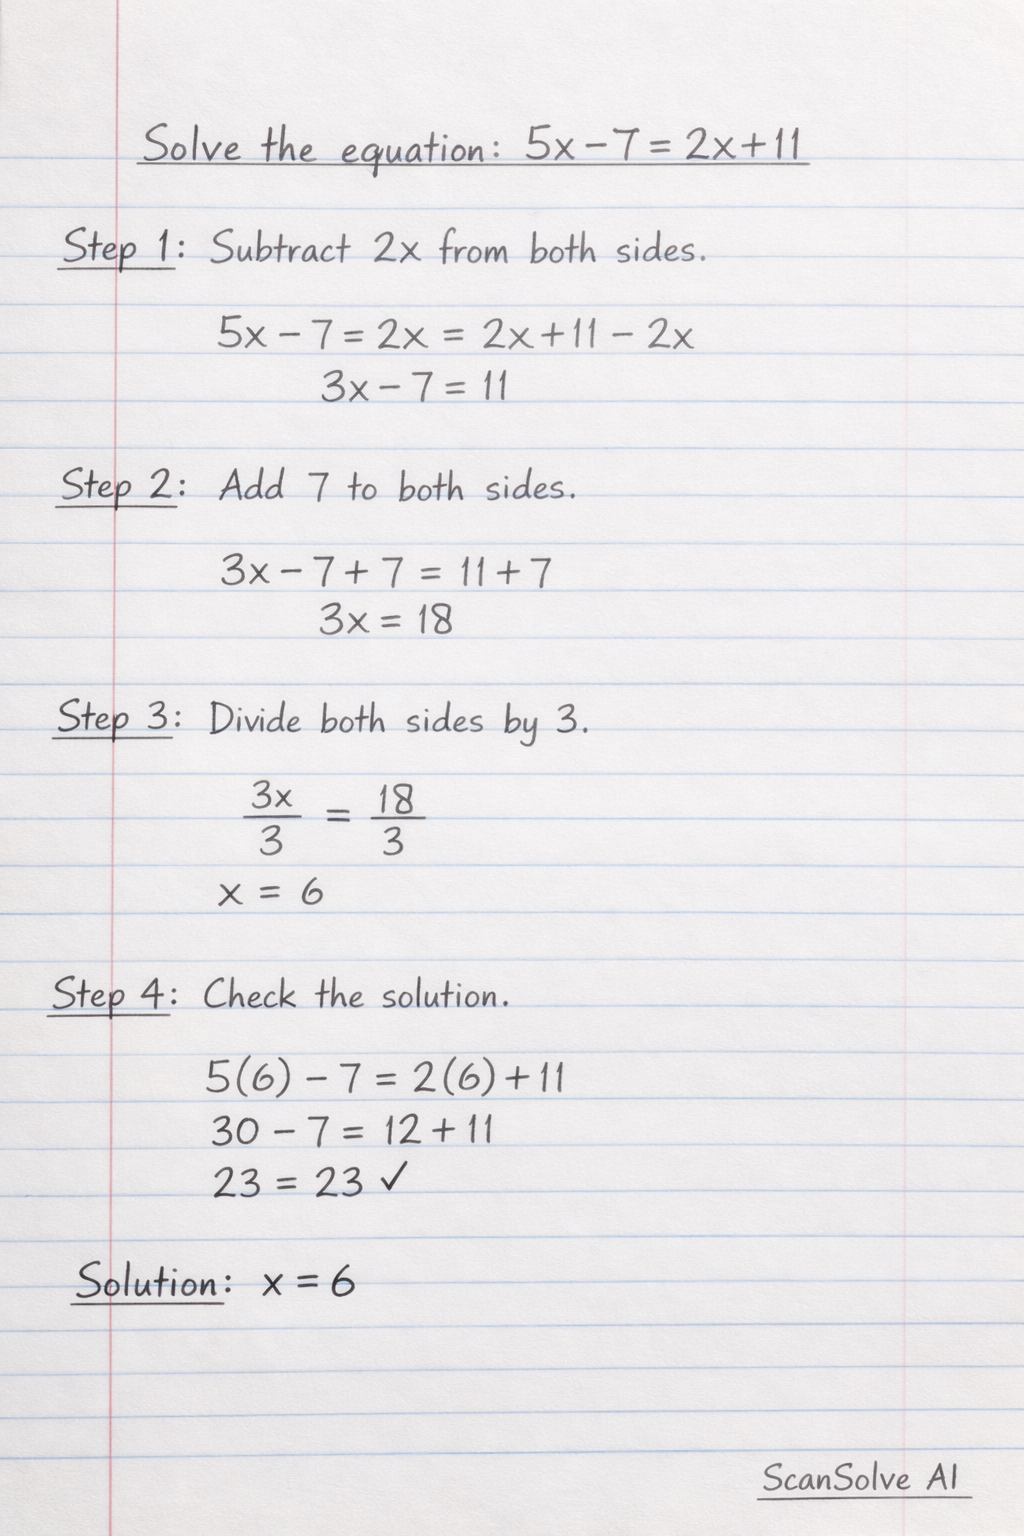 Solve the equation: 5x - 7 = 2x + 11
Step 1: Subtract 2x from both sides.
5x - 7 = 2x = 2x + 11 - 2x
3x - 7 = 11
Step 2: Add 7 to both sides.
3x - 7 + 7 = 11 + 7
3x = 18
Step 3: Divide both sides by 3.
3x/3 = 18/3
x = 6
Step 4: Check the solution.
5(6) - 7 = 2(6) + 11
30 - 7 = 12 + 11
23 = 23 ✓
Solution: x = 6
ScanSolve AI